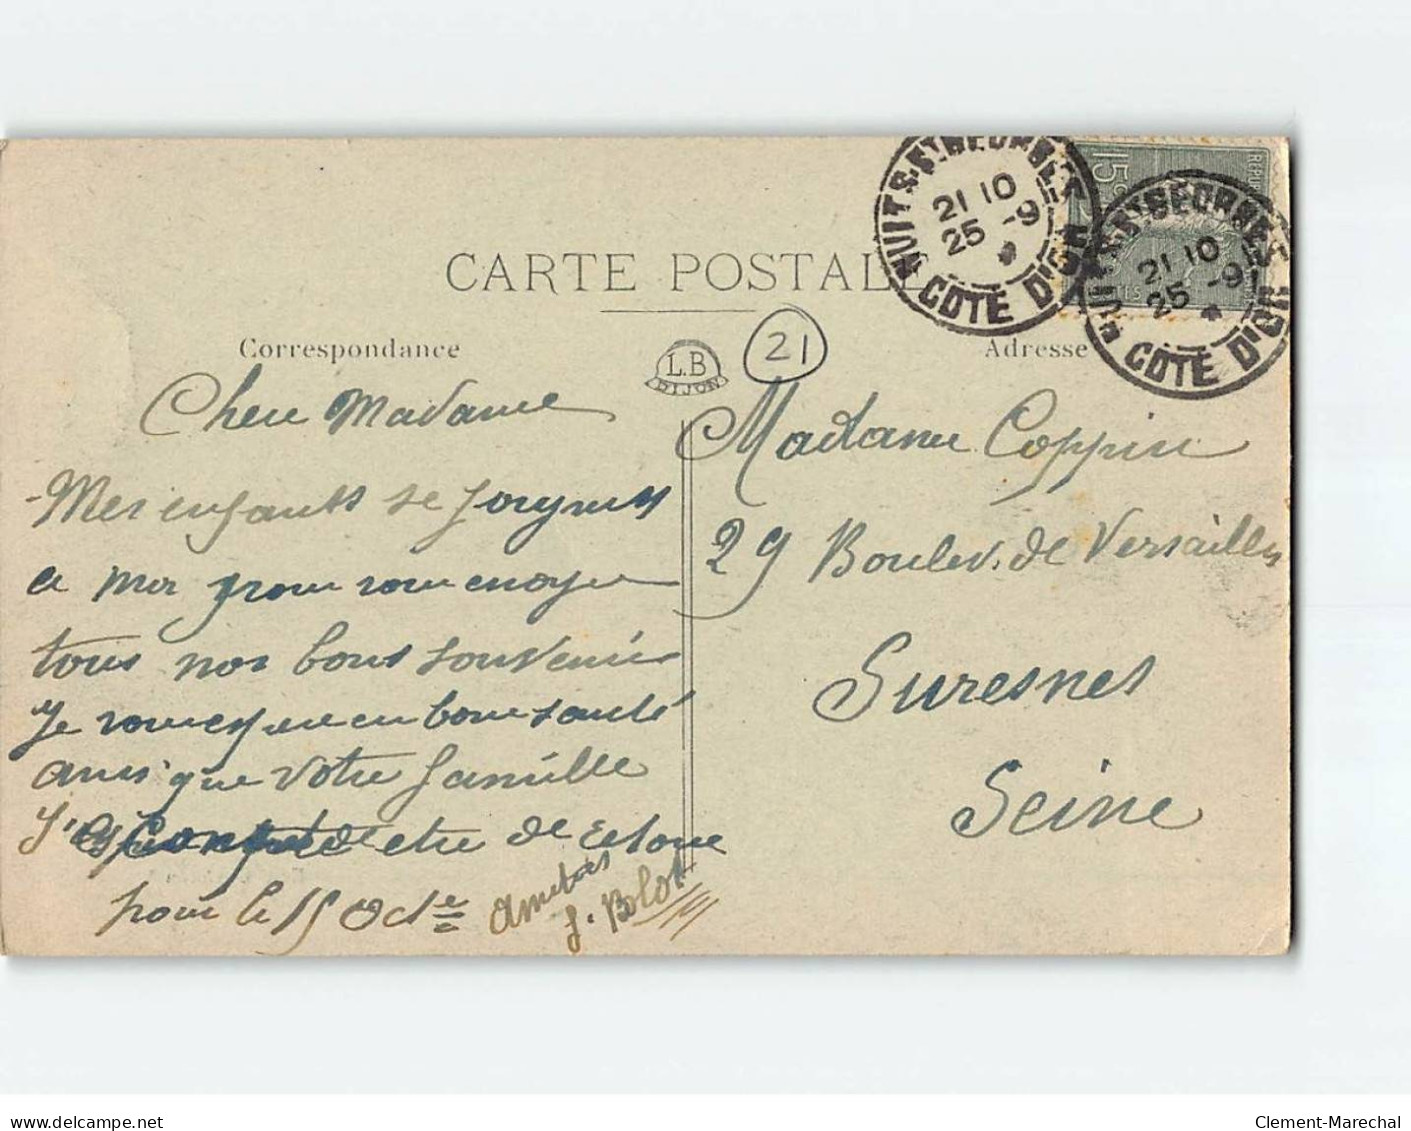 CARTE POSTALE
NUITS-ST-GEORGES
21 10
25 -9
*
COTE D'OR
15c
REPUB
NUITS-ST-GEORGES
21 10
25 -9
*
COTE D'OR
Correspondance
L.B
DIJON
21
Adresse
Chere Madame
Mes enfants se joignent
a moi pour vous envoyer
tous nos bons souvenirs
Je vous espere en bonne santé
ainsi que votre famille
J'espere etre de retour
pour le 15 Octe
Amities
J. Blot
Madame Coppin
29 Boulev. de Versailles
Suresnes
Seine
delcampe.net
Clement-Marechal